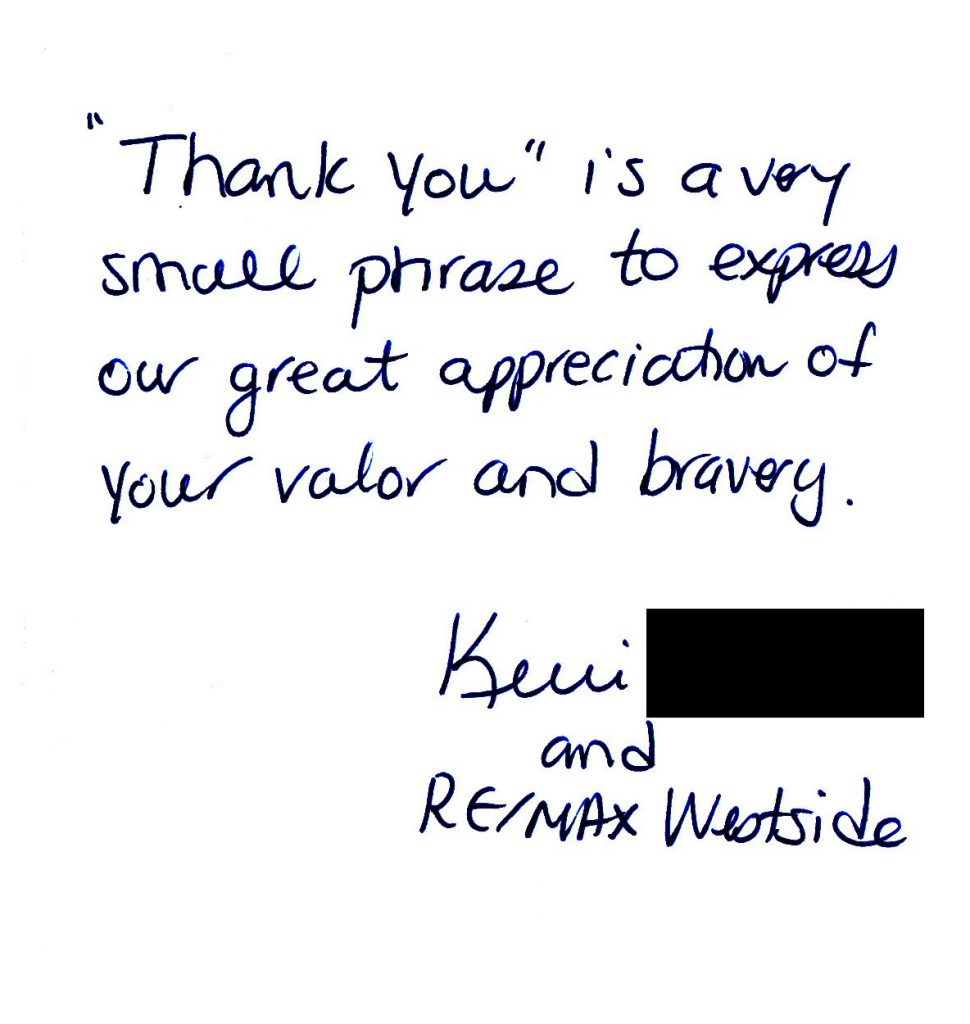 "Thank you" is a very
small phrase to express
our great appreciation of
your valor and bravery.
Kerri
and
RE/MAX Westside